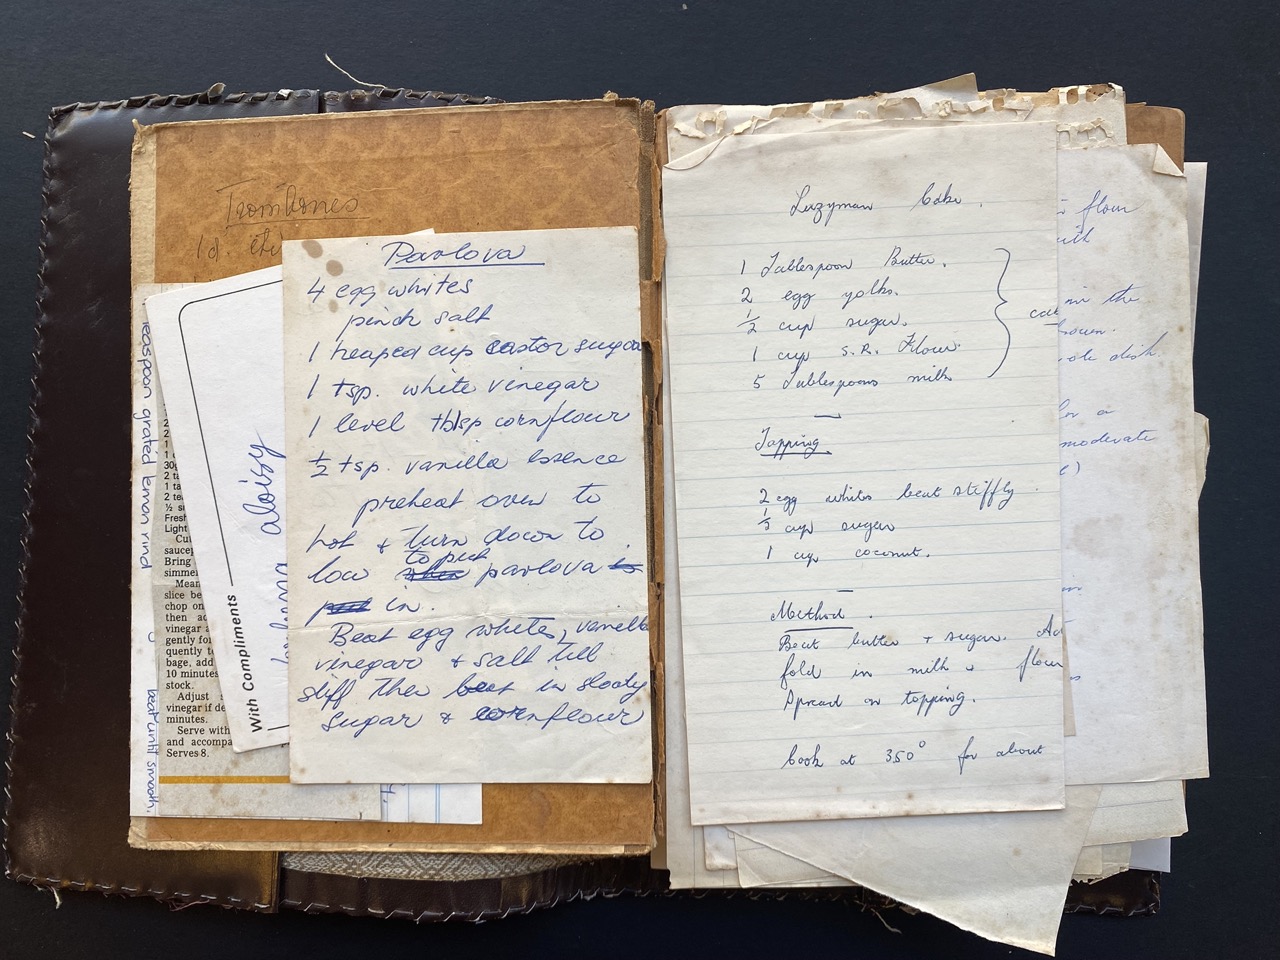 Trombones
1d.
Pavlova
4 egg whites
pinch salt
1 heaped cup castor sugar
1 tsp. white vinegar
1 level tblsp cornflour
½ tsp. vanilla essence
preheat oven to
hot + turn down to
low to put pavlova
in.
Beat egg whites, vanilla
vinegar + salt till
stiff then beat in slowly
sugar & cornflour
teaspoon grated lemon rind
beat until smooth.
With Compliments
aloisy
30g
½
Fresh
Light
Cu
sauce
Bring
simme
Mean
slice be
chop on
then ad
vinegar a
gently for
quently to
bage, add
10 minutes
stock.
Adjust s
vinegar if de
minutes.
Serve with
and accompa
Serves 8.
Lazyman Cake.
1 Tablespoon Butter.
2 egg yolks.
½ cup sugar.
1 cup S.R. Flour.
5 Tablespoons milk
Topping
2 egg whites beat stiffly.
cup sugar
1 cup coconut.
Method.
Beat butter + sugar. Ad
fold in milk + flour
Spread on topping.
Cook at 350° for about
flour
in the
dish.
for a
moderate